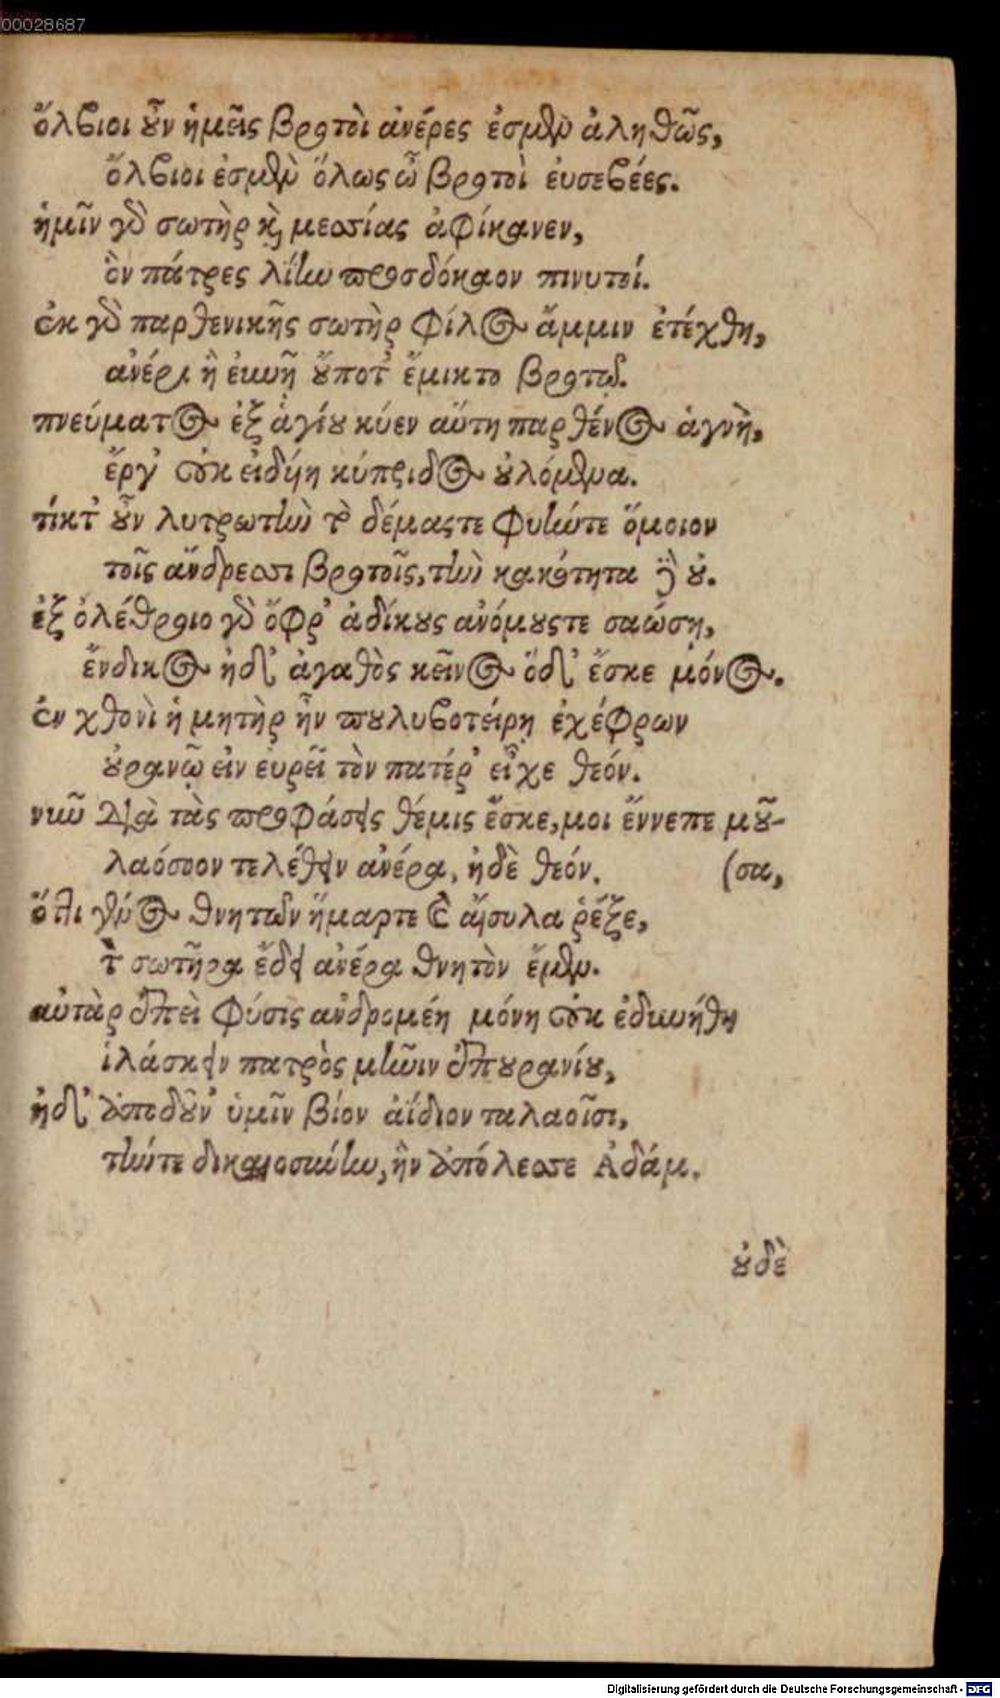 00028687
ὄλβιοι οὖν ἡμεῖς βροτοὶ ἀνέρες ἐσμὲν ἀληθῶς,
ὄλβιοι ἐσμὲν ὅλως ὦ βροτοὶ ἐυσεβέες.
ἡμῖν γὸ σωτὴρ κὶ μεσσίας ἀφίκανεν,
ὃν πάτρες λίην προσδόκαον πινυτοί.
ἐκ γὸ παρθενικῆς σωτὴρ φίλος ἄμμιν ἐτέχθη,
ἀνέρι ἢ ἐυνῇ οὔποτ' ἔμικτο βροτῷ.
πνεύματος ἐξ ἁγίου κύεν αὕτη παρθένος ἁγνὴ,
ἔργ' οὐκ εἰδυίη κύπριδος οὐλόμενα.
τίκτ' οὖν λυτρωτὴν τὸ δέμαςτε φυήντε ὅμοιον
τοῖς ἄνδρεσσι βροτοῖς, τὴν κακότητα δ' οὐ.
ἐξ ὀλέθροιο γὸ ὄφρ' ἀδίκους ἀνόμουςτε σαώσῃ,
ἔνδικος ἠδ' ἀγαθὸς κεῖνος ὅδ' ἔσκε μόνος.
ἐν χθονὶ ἡ μητὴρ ἦν πουλυβοτείρῃ ἐχέφρων
οὐρανῷ εἰν ευρεῖ τὸν πατέρ' εἶχε θεόν.
νῦν διὰ τὰς προφάσεις θέμις ἔσκε, μοι ἔννεπε μοῦ-
λαόσσον τελέθειν ἀνέρα, ἠδὲ θεόν. (σα,
ὅτι γένος θνητῶν ἥμαρτε καὶ αἴσυλα ῥέξε,
τὸ σωτῆρα ἔδει ἀνέρα θνητὸν ἔμεν.
αὐτὰρ ἐπεὶ φύσις ἀνδρομέη μόνη οὐκ ἐδυνήθη
ἱλάσκειν πατρὸς μῆνιν ἐπουρανίου,
ἠδ' ἀποδοῦν' ὑμῖν βίον ἀΐδιον ταλαοῖσι,
τήντε δικαιοσύνην, ἣν ἀπόλεσσε Ἀδάμ.
οὐδὲ
Digitalisierung gefördert durch die Deutsche Forschungsgemeinschaft - DFG